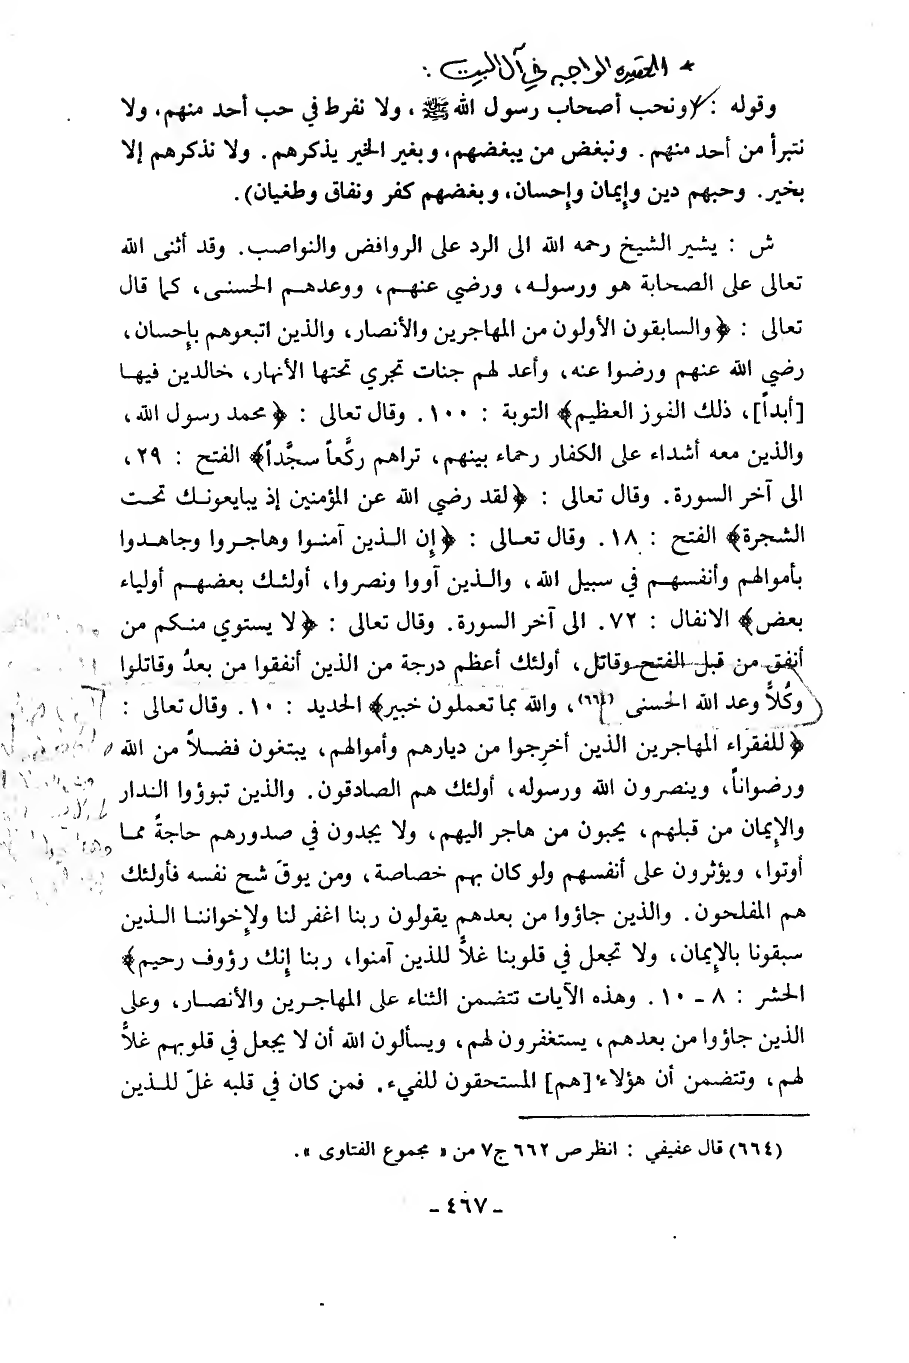 * العقيدة الواجبه في آل البيت :
وقوله : (ونحب أصحاب رسول الله ﷺ ، ولا نفرط في حب أحد منهم، ولا
نتبرأ من أحد منهم . ونبغض من يبغضهم، وبغير الخير يذكرهم . ولا نذكرهم إلا
بخير. وحبهم دين وإيمان وإحسان، وبغضهم كفر ونفاق وطغيان).
ش : يشير الشيخ رحمه الله الى الرد على الروافض والنواصب. وقد أثنى الله
تعالى على الصحابة هو ورسوله، ورضي عنهم، ووعدهم الحسنى، كما قال
تعالى : ﴿والسابقون الأولون من المهاجرين والأنصار، والذين اتبعوهم بإحسان،
رضي الله عنهم ورضوا عنه، وأعد لهم جنات تجري تحتها الأنهار، خالدين فيها
[أبداً]، ذلك الفوز العظيم﴾ التوبة : ١٠٠. وقال تعالى : ﴿محمد رسول الله،
والذين معه أشداء على الكفار رحماء بينهم، تراهم ركَّعاً سجَّداً﴾ الفتح : ٢٩،
الى آخر السورة. وقال تعالى : ﴿لقد رضي الله عن المؤمنين إذ يبايعونك تحت
الشجرة﴾ الفتح : ١٨. وقال تعالى : ﴿إن الذين آمنوا وهاجروا وجاهدوا
بأموالهم وأنفسهم في سبيل الله، والذين آووا ونصروا، أولئك بعضهم أولياء
بعض﴾ الانفال : ٧٢. الى آخر السورة. وقال تعالى : ﴿لا يستوي منكم من
أنفق من قبل الفتح وقاتل، أولئك أعظم درجة من الذين أنفقوا من بعدُ وقاتلوا
وكُلاًّ وعد الله الحسنى (٦٦٤)، والله بما تعملون خبير﴾ الحديد : ١٠. وقال تعالى :
﴿للفقراء المهاجرين الذين أخرِجوا من ديارهم وأموالهم، يبتغون فضلاً من الله
ورضواناً، وينصرون الله ورسوله، أولئك هم الصادقون. والذين تبوؤوا الدار
والإيمان من قبلهم، يحبون من هاجر اليهم، ولا يجدون في صدورهم حاجةً مما
أوتوا، ويؤثرون على أنفسهم ولو كان بهم خصاصة، ومن يوقَ شح نفسه فأولئك
هم المفلحون. والذين جاؤوا من بعدهم يقولون ربنا اغفر لنا ولإخواننا الذين
سبقونا بالإيمان، ولا تجعل في قلوبنا غلاًّ للذين آمنوا، ربنا إنك رؤوف رحيم﴾
الحشر : ٨ - ١٠. وهذه الآيات تتضمن الثناء على المهاجرين والأنصار، وعلى
الذين جاؤوا من بعدهم، يستغفرون لهم، ويسألون الله أن لا يجعل في قلوبهم غلاًّ
لهم، وتتضمن أن هؤلاء [هم] المستحقون للفيء. فمن كان في قلبه غلّ للذين
(٦٦٤) قال عفيفي : انظر ص ٦٦٢ ج٧ من « مجموع الفتاوى ».
- ٤٦٧ -